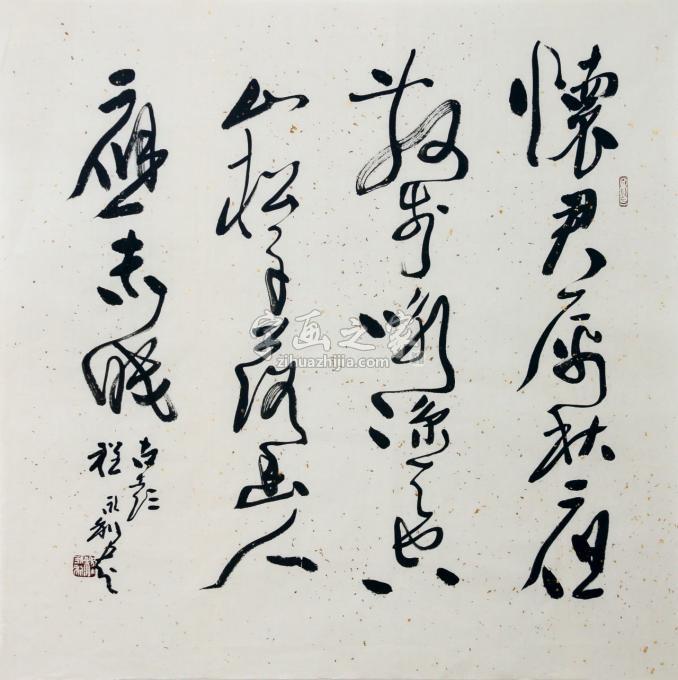 懷君属秋夜
散步咏凉天空
山松子落幽人
應未眠
程永利
字画之家
zihuazhijia.com